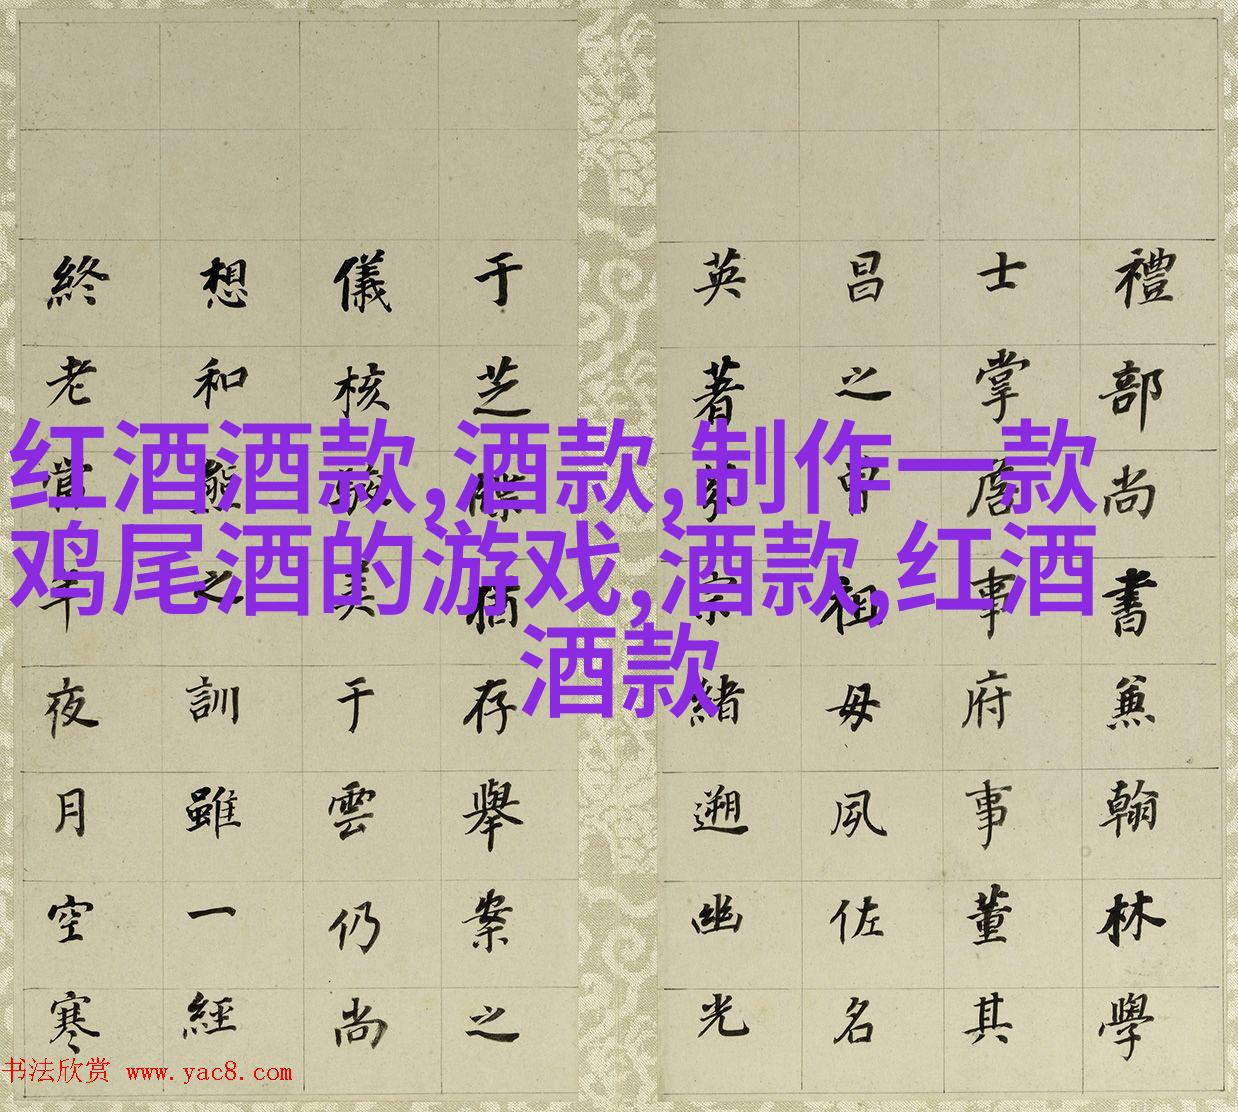 禮部尚書兼翰林學
士掌詹事府事董其
昌之曾祖母夙佐名
英著
宗緒遡幽光
于芝
存舉案之
儀核
美于雲仍尚
想和熊之訓雖一經
終老嘗
夜月空寒
红酒酒款,酒款,制作一款
鸡尾酒的游戏,酒款,红酒
酒款
书法欣赏 www.yac8.com